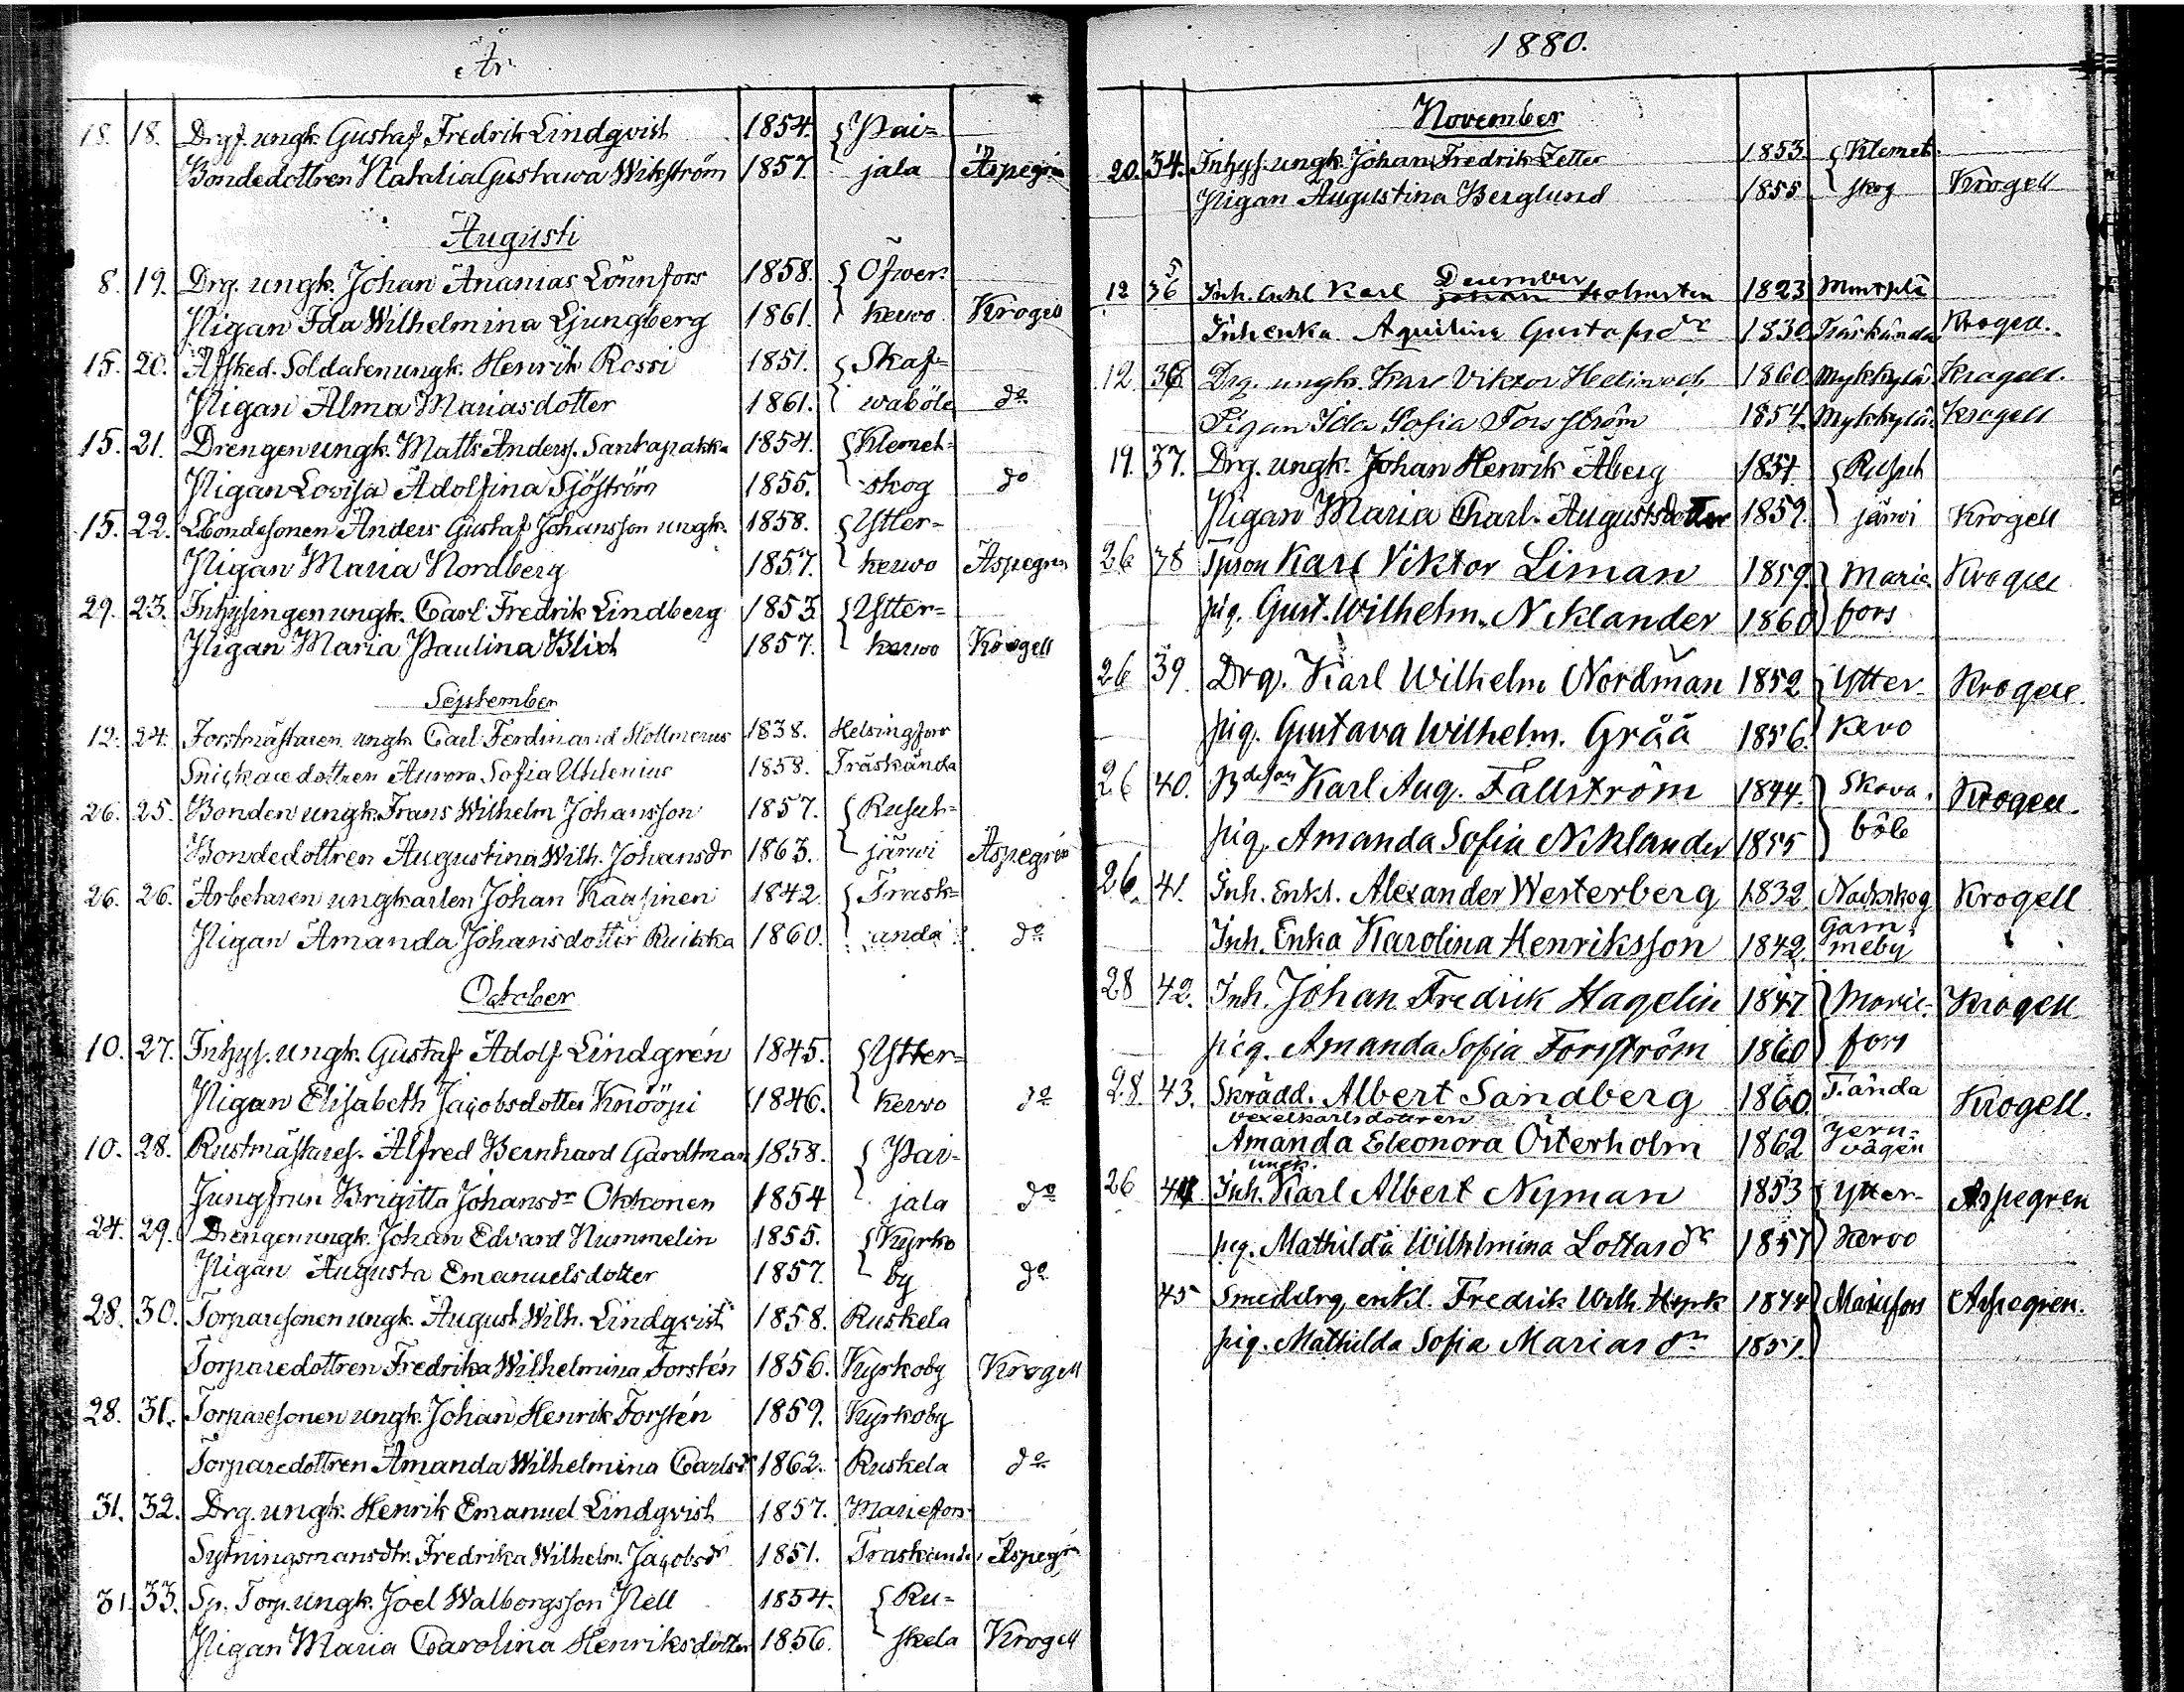 År
18. 18. Drgf. ungk. Gustaf Fredrik Lindqvist 1854. Pai-
Bondedottren Natalia Gustawa Wikström 1857. jala Aspegrén
Augusti
8. 19. Drg. ungk. Johan Ananias Lönnfors 1858. Öfwer-
Pigan Ida Wilhelmina Ljungberg 1861. kerwo Krogell
15. 20. Afsked. Soldaten ungk. Henrik Rossi 1851. Skaf-
Pigan Alma Mariasdotter 1861. waböle do
15. 21. Drengen ungk. Matts Anderss. Santapakka 1854. Klemet-
Pigan Lovisa Adolfina Sjöström 1855. skog do
15. 22. Bondesonen Anders Gustaf Johansson ungk. 1858. Ytter-
Pigan Maria Nordberg 1857. kerwo Aspegrén
29. 23. Inhysingen ungk. Carl Fredrik Lindberg 1853 Ytter-
Pigan Maria Paulina Blixt 1857. kerwo Krogell
September
12. 24. Forstmästaren ungk. Carl Ferdinand 1838. Helsingfors
Snickaredottren Aurora Sofia Uhlenius 1858. Träskända
26. 25. Bonden ungk. Frans Wilhelm Johansson 1857. Rusut-
Bondedottren Augustina Wilh. Johansdr 1863. järwi Aspegrén
26. 26. Arbetaren ungkarlen Johan Kaasinen 1842 Träsk-
Pigan Amanda Johansdotter Ruikka 1860. ända do
October
10. 27. Inhys. ungk. Gustaf Adolf Lindgrén 1845. Ytter-
Pigan Elisabeth Jacobsdotter Knööpi 1846. kerwo do
10. 28. Rustmästares. Alfred Bernhard Gardtman 1858. Pai-
Jungfrun Brigitta Johansdr Okkonen 1854 jala do
24. 29. Drengen ungk. Johan Edvard Nummelin 1855. Kyrko
Pigan Augusta Emanuelsdotter 1857. by do
28. 30. Torparesonen ungk. August Wilh. Lindqvist 1858. Ruskela
Torparedottren Fredrika Wilhelmina Forstén 1856. Kyrkoby Krogell
28. 31. Torparesonen ungk. Johan Henrik Forstén 1859. Kyrkoby
Torparedottren Amanda Wilhelmina Carlsdr 1862. Ruskela do
31. 32. Drg. ungk. Henrik Emanuel Lindqvist 1857. Mariefors
Sytningsmansdtr. Fredrika Wilhelm. Jacobsdr 1851. Träskända Aspegrn
31. 33. Sp. Torp. ungk. Joel Walborgsson Pell 1854. Ru-
Pigan Maria Carolina Henriksdotter 1856. skela Krogell
1880.
November
20. 34. Inhys. ungk. Johan Fredrik Zetter 1853. Klemet
Pigan Augustina Berglund 1855 skog Krogell
December
12 35 Inh. Enkl Karl Johan Holmsten 1823
Inh enka Aquilina Gustafsdr 1830. Träskända Krogell.
12. 36 Drg. ungk. Karl Viktor 1860 Mykkylä Krogell.
Pigan Ida Sofia Forsström 1854. Mykkylä. Krogell
19. 37. Drg. ungk. Johan Henrik Åberg 1854 Rusut
Pigan Maria Charl. Augustsdotter 1859. järwi Krogell
26 38 Karl Viktor Liman 1859. Marie- Krogell
pig. Gust. Wilhelm. Niklander 1860 fors
26 39 Drg. Karl Wilhelm Nordman 1852 Ytter- Krogell.
pig. Gustava Wilhelm. Gråå 1856. Kervo
26 40. Bdeson Karl Aug. Fallström 1844. Skava. Krogell.
pig. Amanda Sofia Niklander 1855 böle
26. 41. Inh. Enkl. Alexander Westerberg 1832 Nackskog Krogell
Inh. Enka Karolina Henriksson 1842. Gam meby
28 42. Inh. Johan Fredrik Hagelin 1847 Marie- Krogell.
pig. Amanda Sofia Forsström 1860 fors
28. 43. Skrädd. Albert Sandberg 1860. T.ända Krogell.
vexelkarlsdottren
Amanda Eleonora Österholm 1862 jern-vägen
ungk.
26 44. Inh. Karl Albert Nyman 1853 Ytter- Aspegren
pig. Mathilda Wilhelmina Lottasdr 1857 Kervo
45 Smeddrg, enkl. Fredrik Wilh. 1844 Mariefors Aspegren.
pig. Mathilda Sofia Mariasdr 1857.